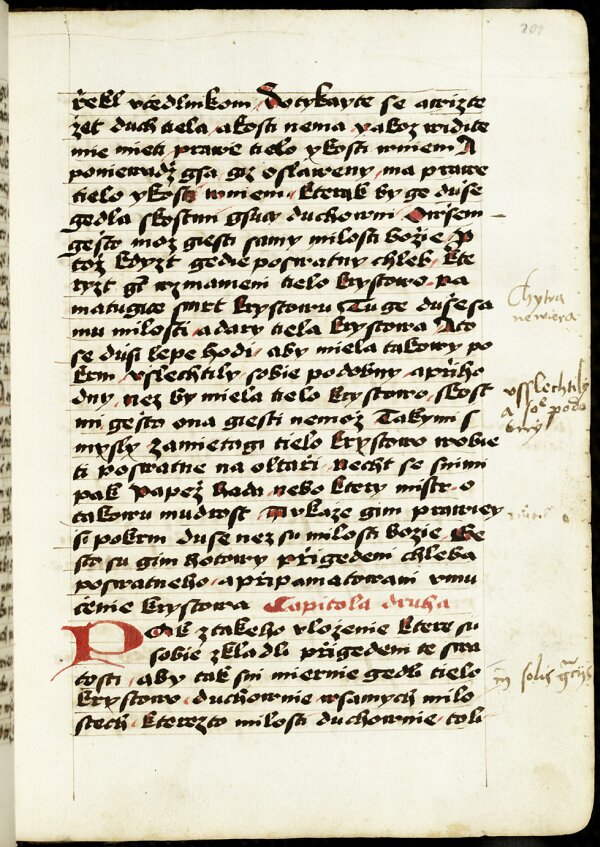 201
řekl včedlnikom Dotykayte se a wizte
žeť duch tiela a kosti nema yakoz widite
mie mieti prawe tielo y kosti wniem A
poniewadž gsa giz oslaweny ma prawe
tielo y kosti wniem kterak by ge duše
gedla s kostmi gsuci duchowni Owšem
gešto mož giesti samy milosti božie A
tož kdyzt gedie poswatny chleb kte
ryzt gt wzmameni tielo krystowo pa
matugice smrt krystowu Tu ge duše sa
mu milosti a dary tiela krystowa A to
se duši lepe hodi aby miela takowy po
krm vslechtily sobie podobny a přiho
dny nez by miela tielo krystowo s kost
mi gešto ona giesti nemož Takymi s
mysly zamietagi tielo krystowo w obie
ti poswatne na oltaři Necht se snimi
pak Papež hada nebo ktery mistr o
takowu mudrost A vkaze gim prawiey
si pokrm duše nez su milosti božie Ge
sto su gim hotowy přigedeni chleba
poswatneho a připamatowani vmu
čenie krystowa Capitola druha
Pak z takeho vloženie ktere su
sobie zkladli přigedeni te swa
tosti aby tak sni miernie gedli tielo
krystowo duchownie w samych milo
stech kterezto milosti duchownie toli
Chytra
newiera
vsslechtily
a sobe podo
bny
in solis graciis